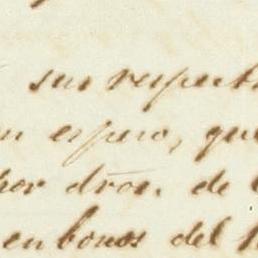 sus respect
espero, que
dro. de
en bonos del